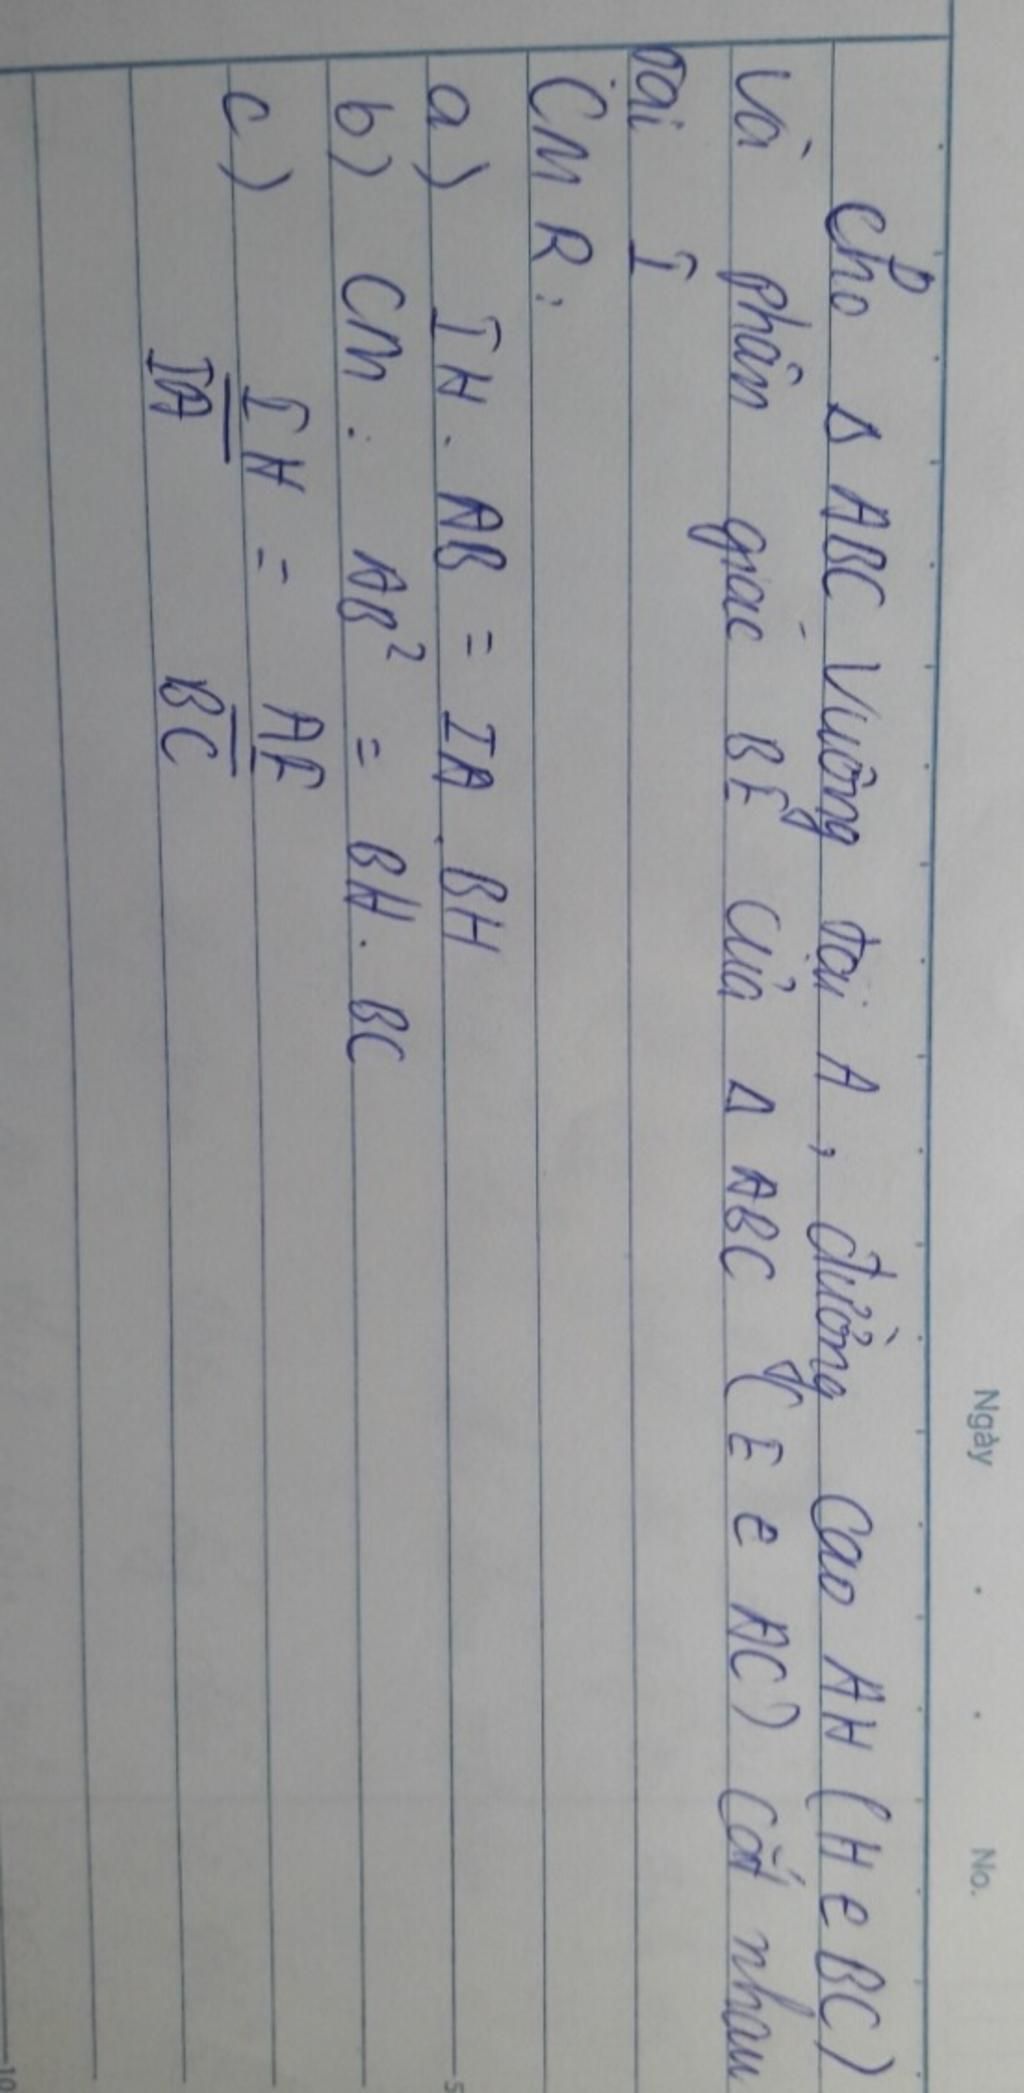 Ngày . . No.
Cho Δ ABC Vuông tại A, đường Cao AH (H e BC)
Và phân giác BE của Δ ABC (E e AC) Cắt nhau
tại I
CMR:
a) IH. AB = IA. BH
b) CM: AB² = BH. BC
c) IH = AE
IA BC
5
10